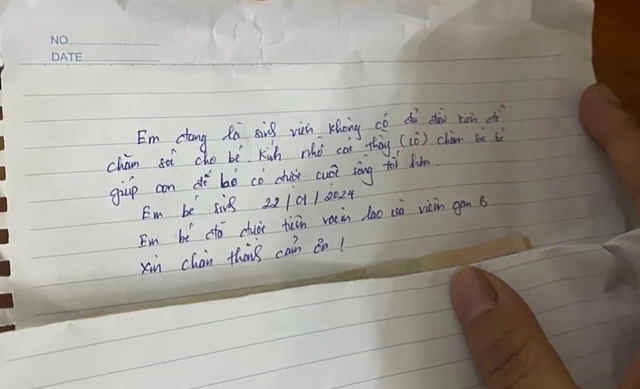 NO
DATE
Em đang là sinh viên không có đủ điều kiện để
chăm sóc cho bé. Kính nhờ các thầy (cô) chăm sóc bé
giúp con để bé có được cuộc sống tốt hơn.
Em bé sinh 22/01/2024
Em bé đã được tiêm vacin lao và viêm gan B.
Xin chân thành cảm ơn!